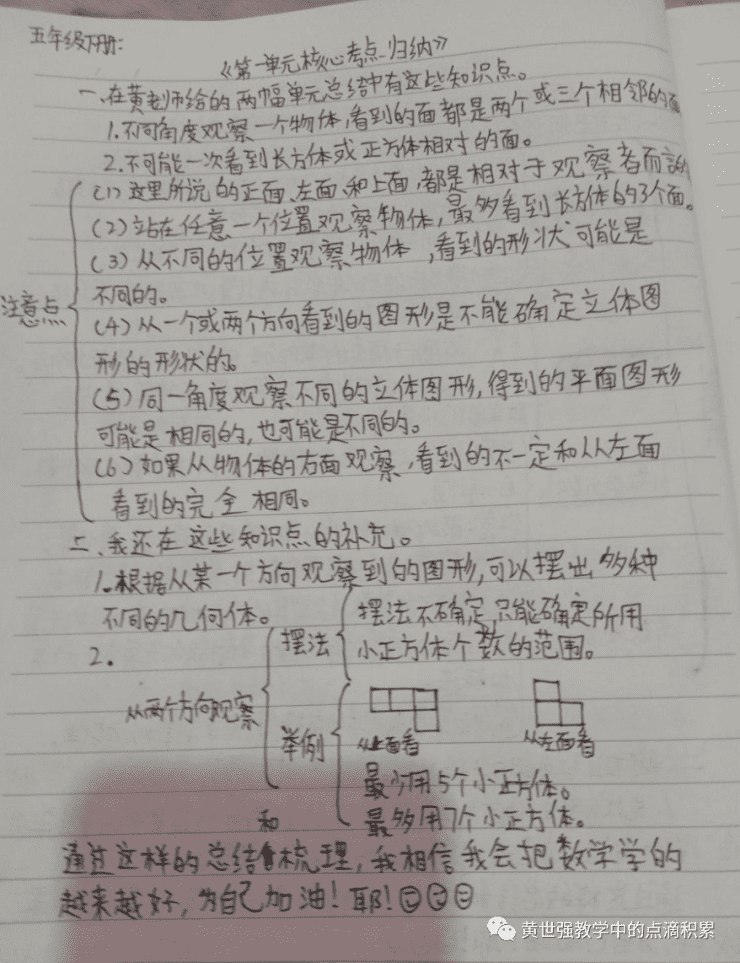 五年级下册:
《第一单元核心考点归纳》
一、在黄老师给的两幅单元总结中有这些知识点。
1.不同角度观察一个物体,看到的面都是两个或三个相邻的面
2.不可能一次看到长方体或正方体相对的面。
注意点
(1)这里所说的正面、左面、和上面,都是相对于观察者而言的
(2)站在任意一个位置观察物体,最多看到长方体的3个面。
(3)从不同的位置观察物体,看到的形状可能是
不同的。
(4)从一个或两个方向看到的图形是不能确定立体图
形的形状的。
(5)同一角度观察不同的立体图形,得到的平面图形
可能是相同的,也可能是不同的。
(6)如果从物体的右面观察,看到的不一定和从左面
看到的完全相同。
二、我还在这些知识点的补充。
1.根据从某一个方向观察到的图形,可以摆出多种
不同的几何体。
2.
从两个方向观察
摆法
摆法不确定,只能确定所用
小正方体个数的范围。
举例
从上面看
从左面看
最少用5个小正方体。
最多用7个小正方体。
通过这样的总结和梳理,我相信我会把数学学的
越来越好,为自己加油!耶!
黄世强教学中的点滴积累